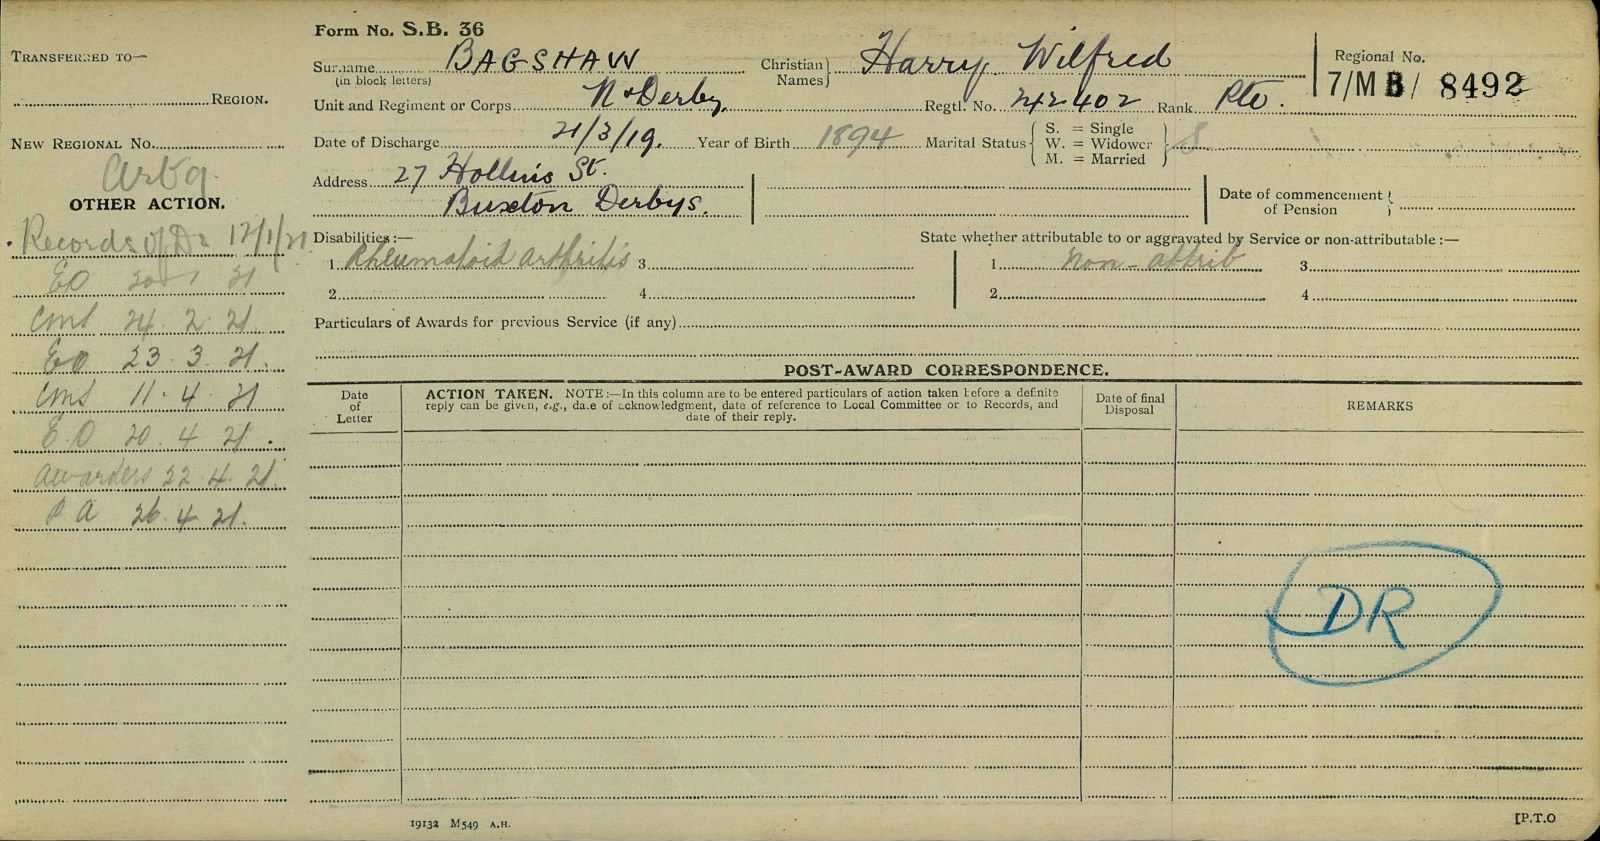 Form No. S.B. 36
TRANSFERRED TO—
REGION.
NEW REGIONAL No.
OTHER ACTION.
Records 12/1/21
EO 20 1 21
Cms 24. 2. 21
EO 23. 3. 21.
Cms 11. 4. 21
E.O 20. 4. 21.
Awarders 22. 4. 21.
P A 26. 4. 21.
Surname BAGSHAW Christian Names} Harry Wilfred
(in block letters)
Regional No.
7/MB/ 8492
Unit and Regiment or Corps N & Derby. Regtl. No. 242402 Rank Pte.
Date of Discharge 21/3/19. Year of Birth 1894 Marital Status { S. = Single W. = Widower M. = Married } S
Address 27 Hollins St.
Buxton Derbys.
Date of commencement of Pension
Disabilities:— State whether attributable to or aggravated by Service or non-attributable:—
1 Rheumatoid arthritis 3 1 non-attrib 3
2 4 2 4
Particulars of Awards for previous Service (if any)
POST-AWARD CORRESPONDENCE.
Date of Letter
ACTION TAKEN. NOTE:—In this column are to be entered particulars of action taken before a definite
reply can be given, e.g., date of acknowledgment, date of reference to Local Committee or to Records, and
date of their reply.
Date of final Disposal
REMARKS
DR
19132 M549 A.H.
[P.T.O